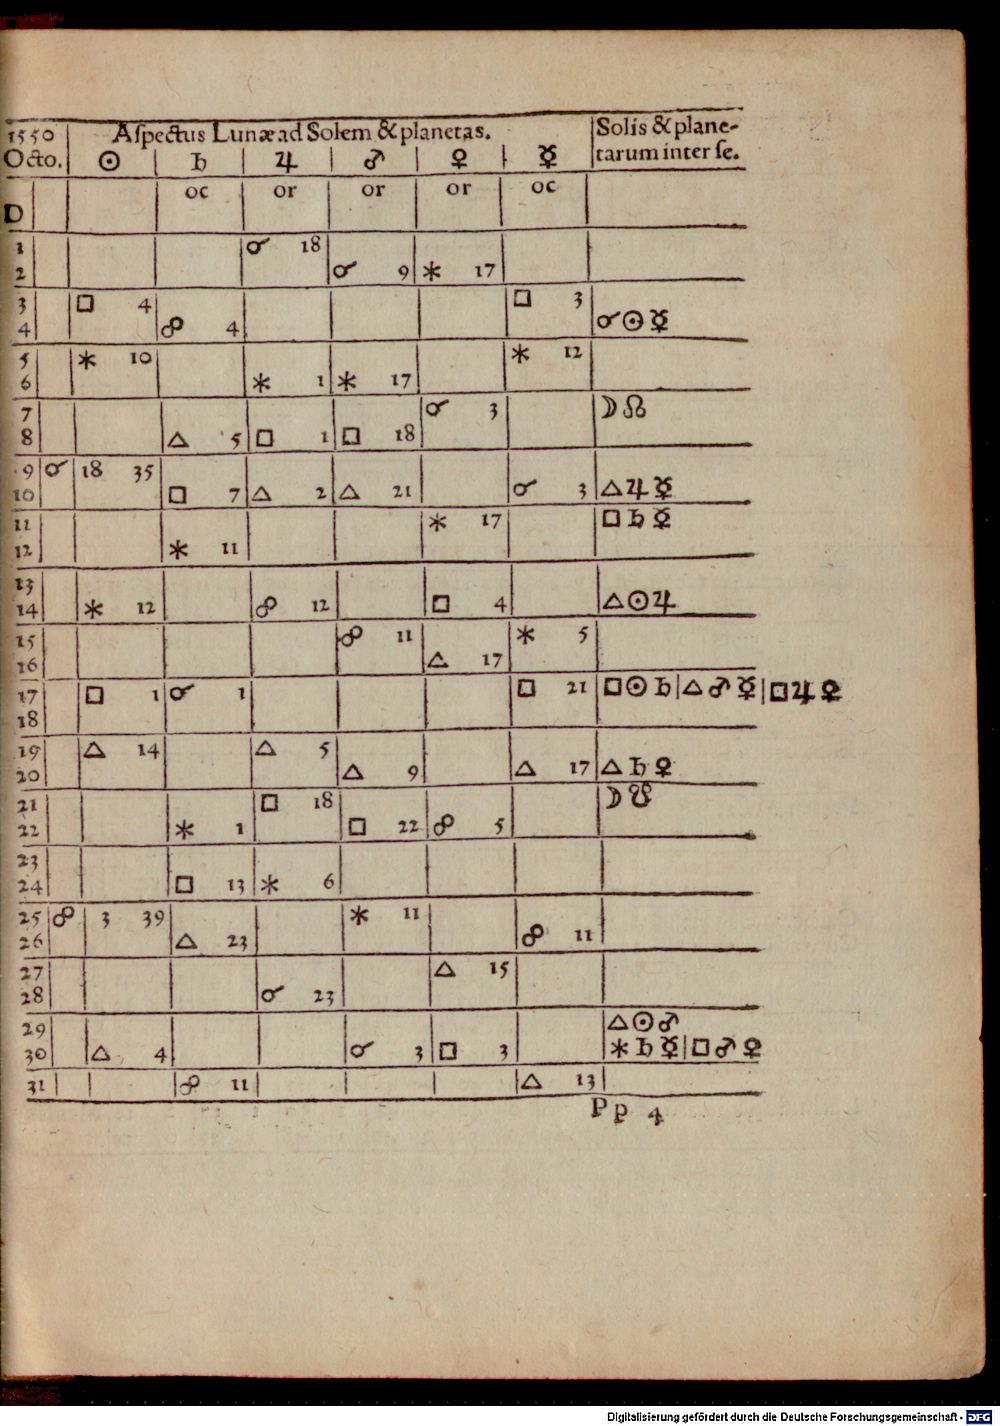 1550 Aſpectus Lunæ ad Solem & planetas. Solis & plane-
Octo. ☉ ♄ ♃ ♂ ♀ ☿ tarum inter ſe.
oc or or or oc
D
1 ☌ 18
2 ☌ 9 ⚹ 17
3 □ 4 □ 3
4 ☍ 4 ☌☉☿
5 ⚹ 10 ⚹ 12
6 ⚹ 1 ⚹ 17
7 ☌ 3 ☽☊
8 △ 5 □ 1 □ 18
9 ☌ 18 35
10 □ 7 △ 2 △ 21 ☌ 3 △♃☿
11 ⚹ 17 □♄☿
12 ⚹ 11
13
14 ⚹ 12 ☍ 12 □ 4 △☉♃
15 ☍ 11 ⚹ 5
16 △ 17
17 □ 1 ☌ 1 □ 21 □☉♄|△♂☿|□♃♀
18
19 △ 14 △ 5
20 △ 9 △ 17 △♄♀
21 □ 18 ☽☋
22 ⚹ 1 □ 22 ☍ 5
23
24 □ 13 ⚹ 6
25 ☍ 3 39 ⚹ 11
26 △ 23 ☍ 11
27 △ 15
28 ☌ 23
29 △☉♂
30 △ 4 ☌ 3 □ 3 ⚹♄☿|□♂♀
31 ☍ 11 △ 13
Pp 4
Digitalisierung gefördert durch die Deutsche Forschungsgemeinschaft - DFG